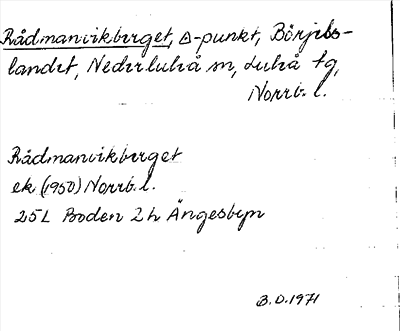 Rådmanvikberget, △-punkt, Börjels-
landet, Nederluleå sn, Luleå tg,
Norrb. l.
Rådmanvikberget
ek (1950) Norrb. l.
25L Boden 2h Ängesbyn
B.O. 1971